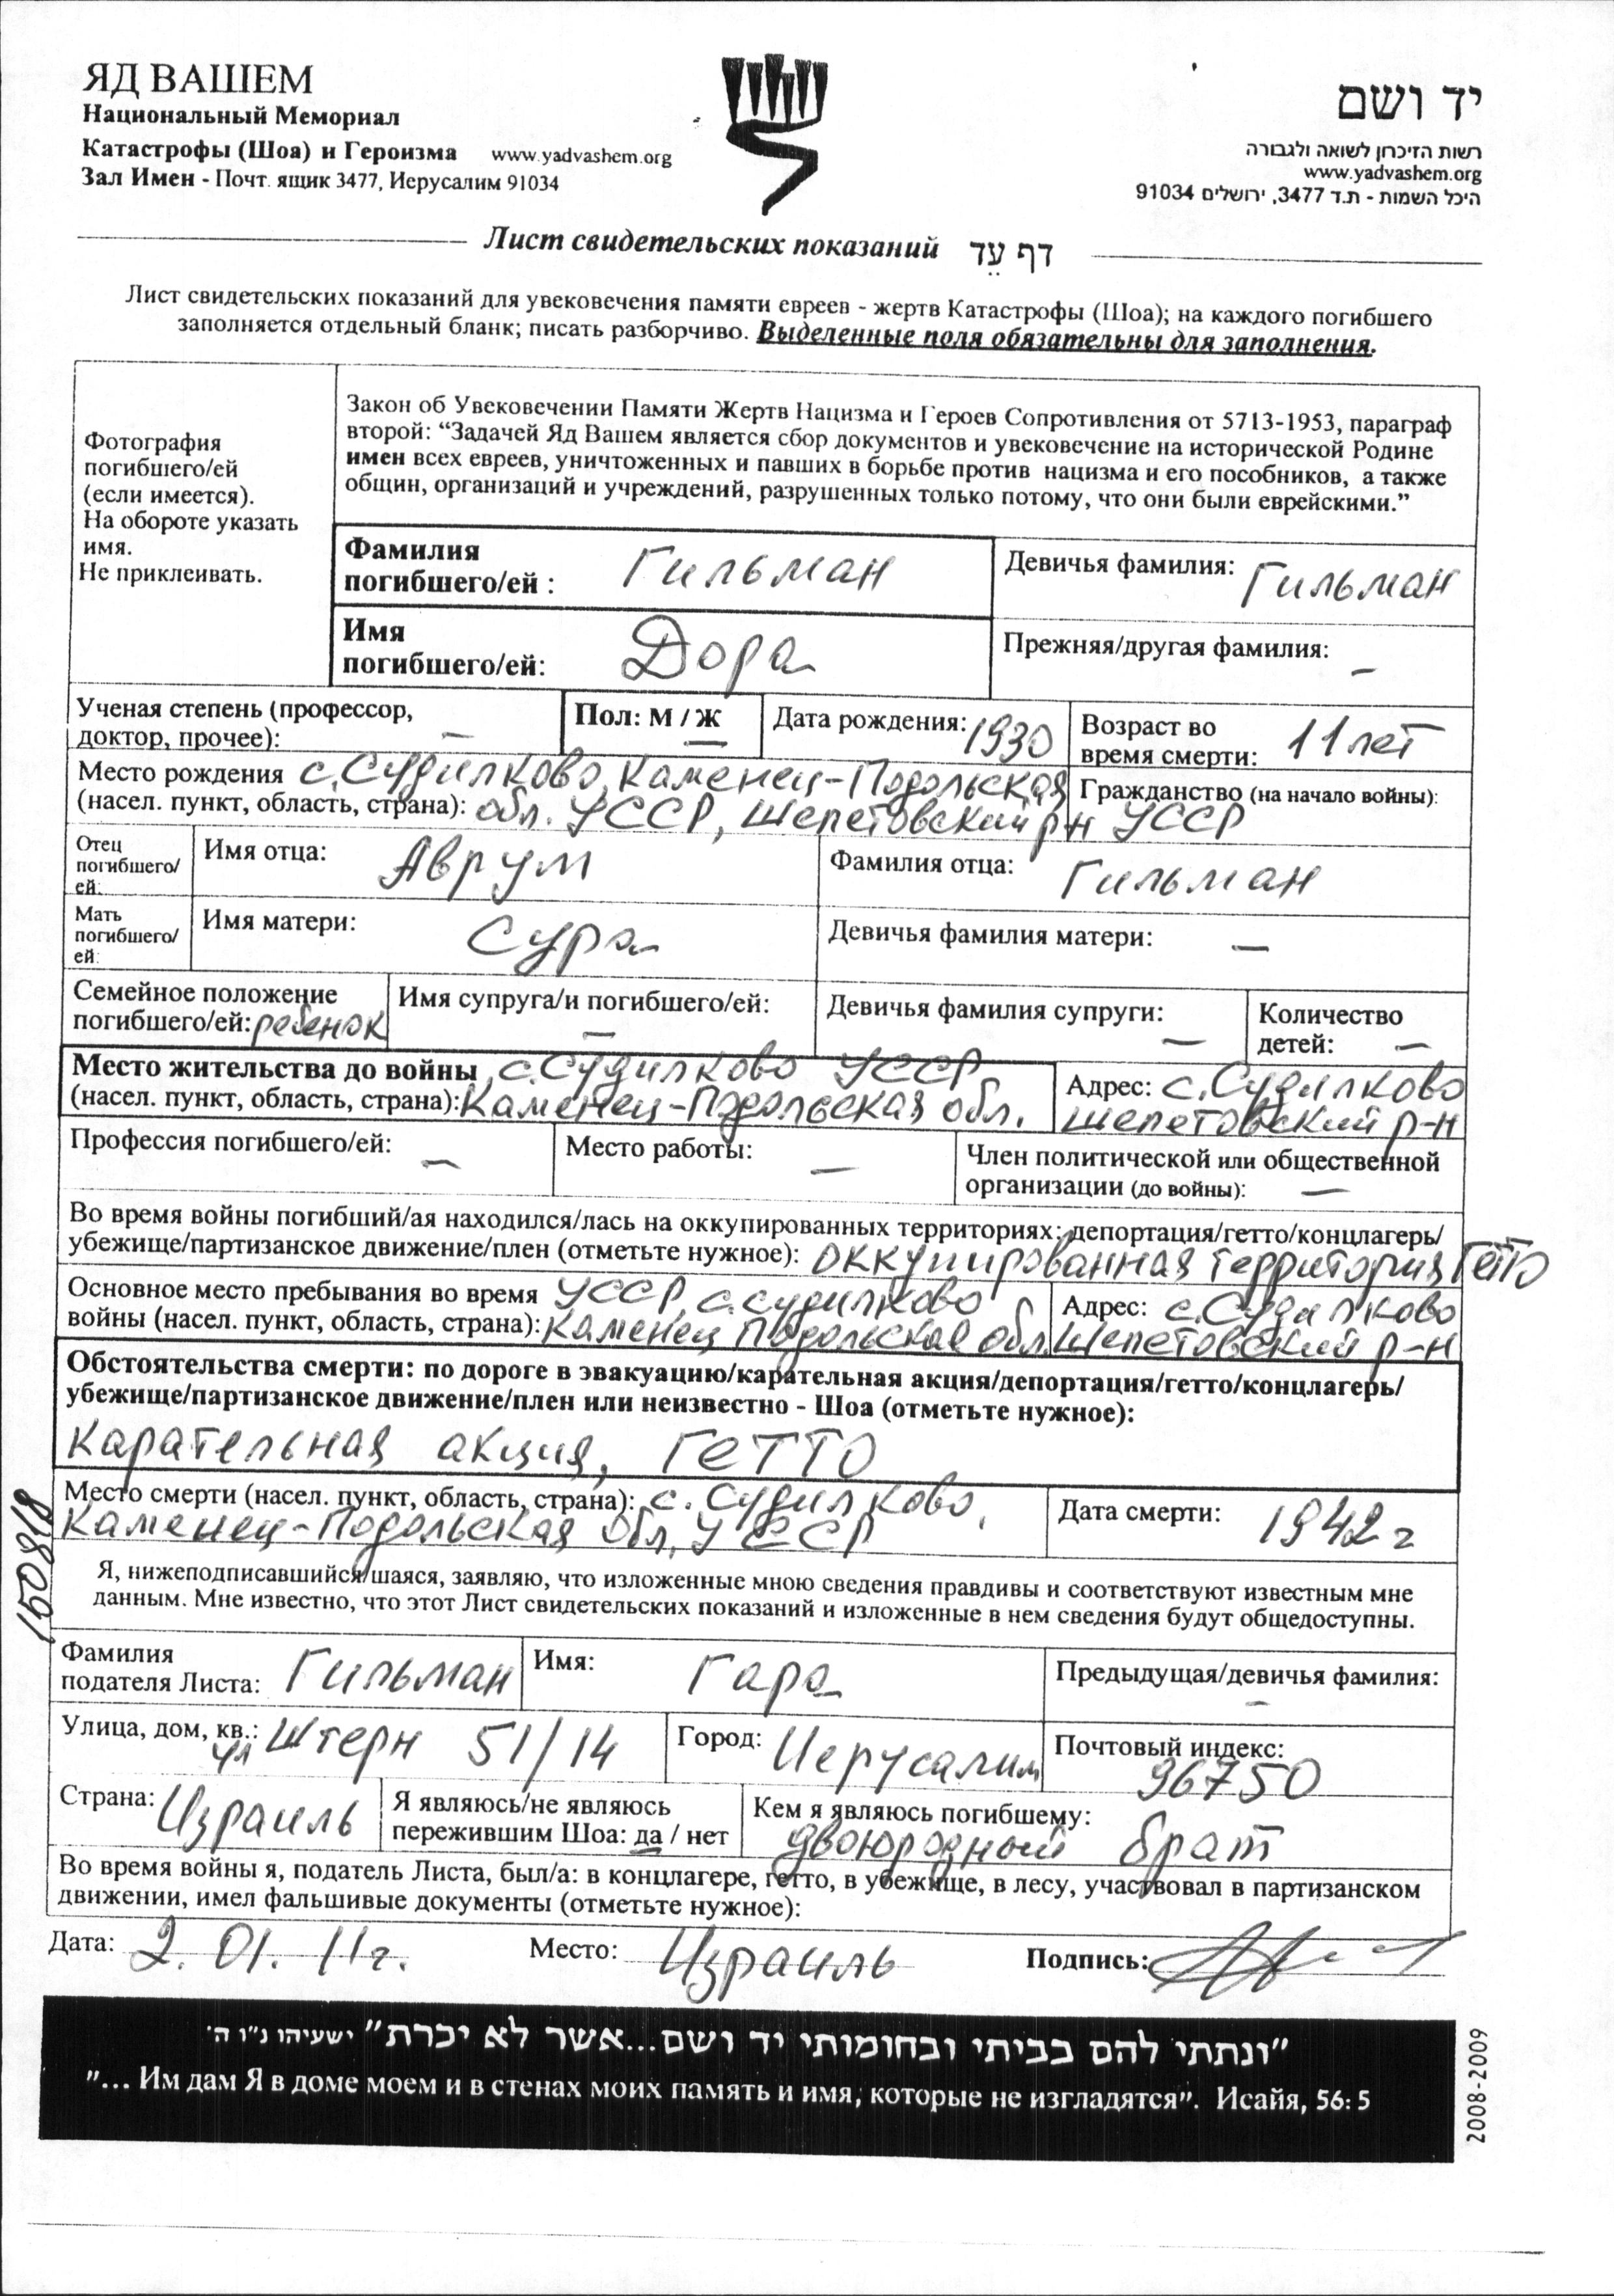 ЯД ВАШЕМ
Национальный Мемориал
Катастрофы (Шоа) и Героизма www.yadvashem.org
Зал Имен - Почт. ящик 3477, Иерусалим 91034
יד ושם
רשות הזיכרון לשואה ולגבורה
www.yadvashem.org
היכל השמות - ת.ד 3477, ירושלים 91034
Лист свидетельских показаний דף עֵד
Лист свидетельских показаний для увековечения памяти евреев - жертв Катастрофы (Шоа); на каждого погибшего
заполняется отдельный бланк; писать разборчиво. Выделенные поля обязательны для заполнения.
Фотография
погибшего/ей
(если имеется).
На обороте указать
имя.
Не приклеивать.
Закон об Увековечении Памяти Жертв Нацизма и Героев Сопротивления от 5713-1953, параграф
второй: “Задачей Яд Вашем является сбор документов и увековечение на исторической Родине
имен всех евреев, уничтоженных и павших в борьбе против нацизма и его пособников, а также
общин, организаций и учреждений, разрушенных только потому, что они были еврейскими.”
Фамилия
погибшего/ей : Гильман
Девичья фамилия: Гильман
Имя
погибшего/ей: Дора
Прежняя/другая фамилия: –
Ученая степень (профессор,
доктор, прочее): –
Пол: М / Ж
Дата рождения: 1930
Возраст во
время смерти: 11 лет
Место рождения с. Судилково, Каменец-Подольская
(насел. пункт, область, страна): обл. УССР, Шепетовский р-н
Гражданство (на начало войны):
УССР
Отец
погибшего/
ей:
Имя отца: Аврум
Фамилия отца: Гильман
Мать
погибшего/
ей:
Имя матери: Сура
Девичья фамилия матери: –
Семейное положение
погибшего/ей: ребенок
Имя супруга/и погибшего/ей:
–
Девичья фамилия супруги:
–
Количество
детей: –
Место жительства до войны с. Судилково УССР
(насел. пункт, область, страна): Каменец-Подольская обл.
Адрес: с. Судилково
Шепетовский р-н
Профессия погибшего/ей: –
Место работы: –
Член политической или общественной
организации (до войны): –
Во время войны погибший/ая находился/лась на оккупированных территориях: депортация/гетто/концлагерь/
убежище/партизанское движение/плен (отметьте нужное): оккупированная территория Гетто
Основное место пребывания во время УССР, с. Судилково
войны (насел. пункт, область, страна): Каменец Подольская обл.
Адрес: с. Судилково
Шепетовский р-н
Обстоятельства смерти: по дороге в эвакуацию/карательная акция/депортация/гетто/концлагерь/
убежище/партизанское движение/плен или неизвестно - Шоа (отметьте нужное):
Карательная акция, ГЕТТО
Место смерти (насел. пункт, область, страна): с. Судилково,
Каменец-Подольская Обл, УССР
Дата смерти: 1942 г
Я, нижеподписавшийся/шаяся, заявляю, что изложенные мною сведения правдивы и соответствуют известным мне
данным. Мне известно, что этот Лист свидетельских показаний и изложенные в нем сведения будут общедоступны.
Фамилия
подателя Листа: Гильман
Имя: Гара
Предыдущая/девичья фамилия:
–
Улица, дом, кв.: ул Штерн 51/14
Город: Иерусалим
Почтовый индекс:
96750
Страна: Израиль
Я являюсь/не являюсь
пережившим Шоа: да / нет
Кем я являюсь погибшему:
двоюродный брат
Во время войны я, податель Листа, был/а: в концлагере, гетто, в убежище, в лесу, участвовал в партизанском
движении, имел фальшивые документы (отметьте нужное):
Дата: 2. 01. 11г. Место: Израиль Подпись:
"ונתתי להם בביתי ובחומותי יד ושם...אשר לא יכרת" ישעיהו נ"ו ה'
"... Им дам Я в доме моем и в стенах моих память и имя, которые не изгладятся". Исайя, 56: 5
2008-2009